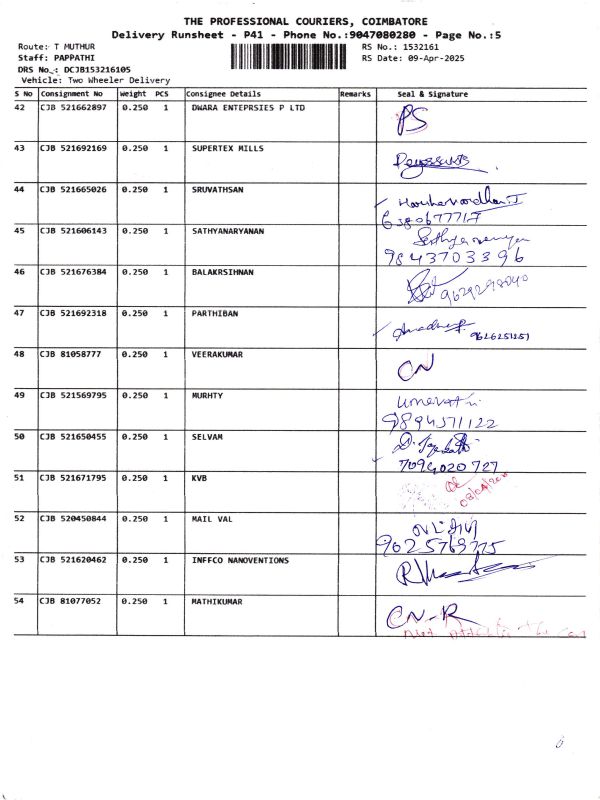 THE PROFESSIONAL COURIERS, COIMBATORE
Delivery Runsheet - P41 - Phone No.:9047080280 - Page No.:5
Route: T MUTHUR
RS No.: 1532161
Staff: PAPPATHI
RS Date: 09-Apr-2025
DRS No.: DCJB153216105
Vehicle: Two Wheeler Delivery
S No Consignment No Weight PCS Consignee Details Remarks Seal & Signature
42 CJB 521662897 0.250 1 DWARA ENTEPRSIES P LTD PS
43 CJB 521692169 0.250 1 SUPERTEX MILLS
44 CJB 521665026 0.250 1 SRUVATHSAN Harshavardhan.J
6380677717
45 CJB 521606143 0.250 1 SATHYANARYANAN
9843703396
46 CJB 521676384 0.250 1 BALAKRSIHNAN 9629298040
47 CJB 521692318 0.250 1 PARTHIBAN 9626251251
48 CJB 81058777 0.250 1 VEERAKUMAR CN
49 CJB 521569795 0.250 1 MURHTY
9894571122
50 CJB 521650455 0.250 1 SELVAM
7094020727
51 CJB 521671795 0.250 1 KVB
52 CJB 520450844 0.250 1 MAIL VAL
9025763775
53 CJB 521620462 0.250 1 INFFCO NANOVENTIONS
54 CJB 81077052 0.250 1 MATHIKUMAR CN-R